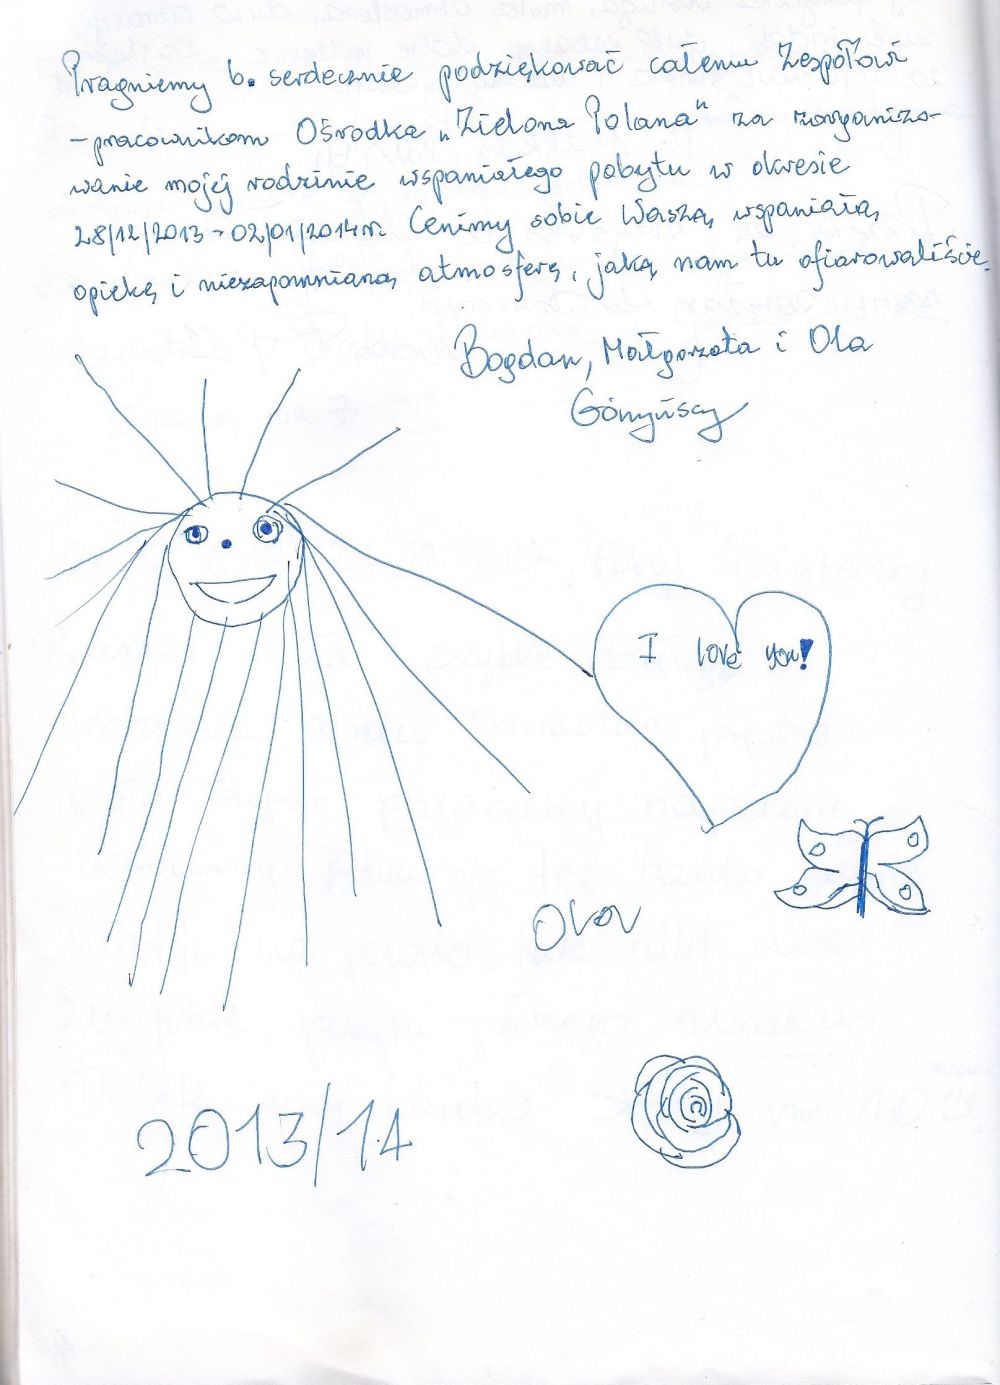 Pragniemy b. serdecznie podziękować całemu Zespółowi
- pracownikom Ośrodka „Zielona Polana" za zorganizo-
wanie mojej rodzinie wspaniałego pobytu w okresie
28/12/2013 - 02/01/2014r. Cenimy sobie Waszą wspaniałą
opiekę i niezapomnianą atmosferę, jaką nam tu ofiarowaliście.
Bogdan, Małgorzata i Ola
I love you!
Ola
2013/14